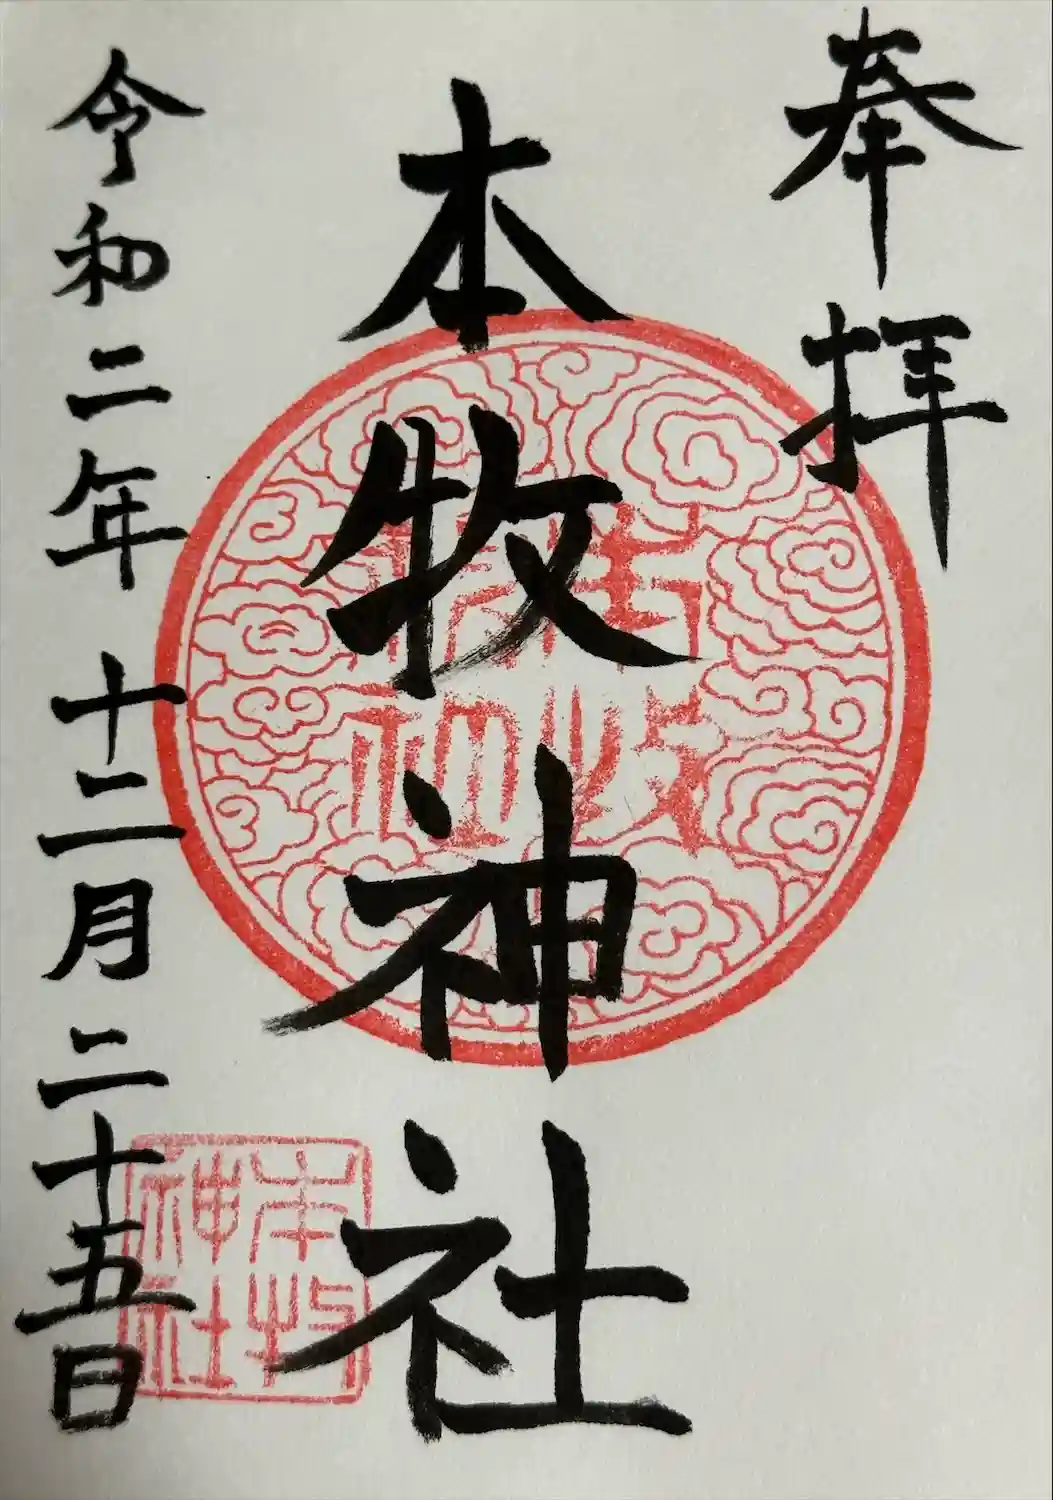 奉拝
本牧神社
令和二年十二月二十五日
本牧
神社